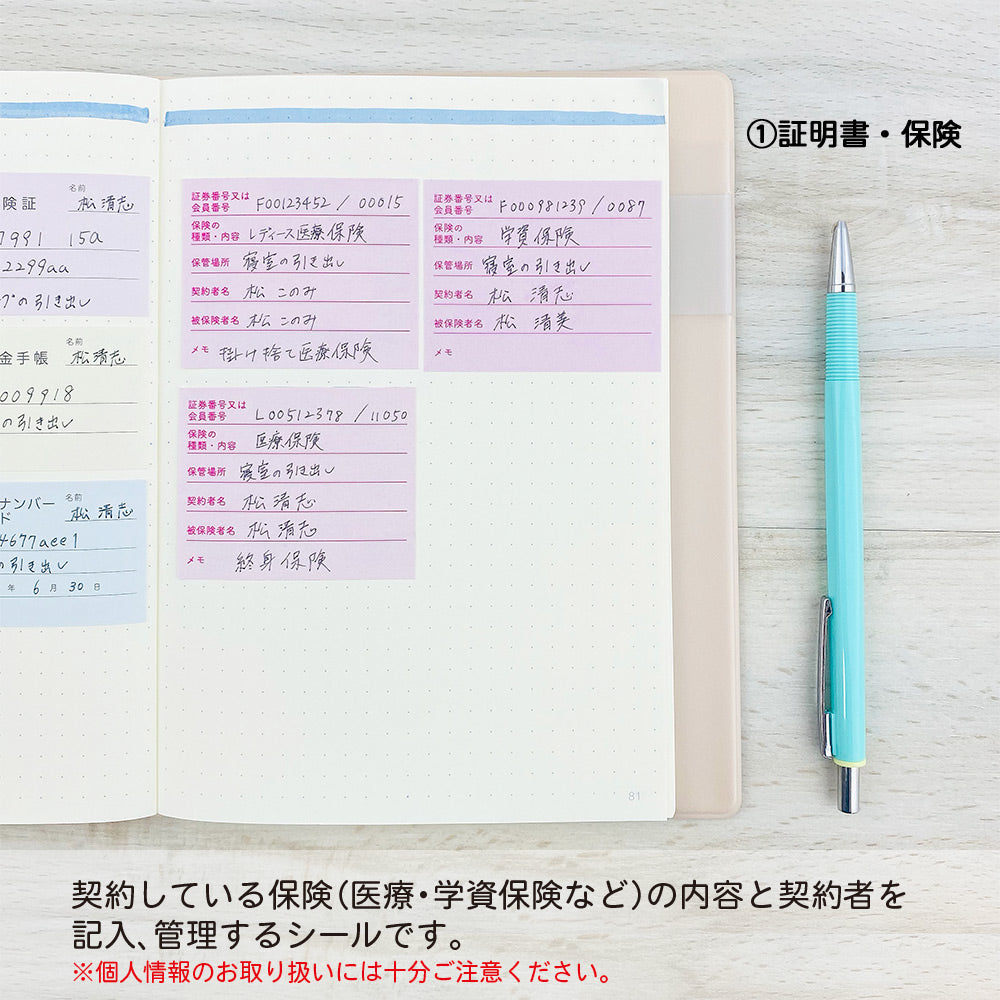 ①証明書・保険
険証 名前 松 清志
7991 15a
2299aa
の引き出し
金手帳 名前 松 清志
009918
の引き出し
ナンバー
ド 名前 松 清志
4677aee1
の引き出し
年 6 月 30 日
証券番号又は
会員番号 F00123452 / 00015
保険の
種類・内容 レディース医療保険
保管場所 寝室の引き出し
契約者名 松 このみ
被保険者名 松 このみ
メモ 掛け捨て医療保険
証券番号又は
会員番号 F000981239 / 0087
保険の
種類・内容 学資保険
保管場所 寝室の引き出し
契約者名 松 清志
被保険者名 松 清美
メモ
証券番号又は
会員番号 L00512378 / 11050
保険の
種類・内容 医療保険
保管場所 寝室の引き出し
契約者名 松 清志
被保険者名 松 清志
メモ 終身保険
81
契約している保険(医療・学資保険など)の内容と契約者を
記入、管理するシールです。
※個人情報のお取り扱いには十分ご注意ください。